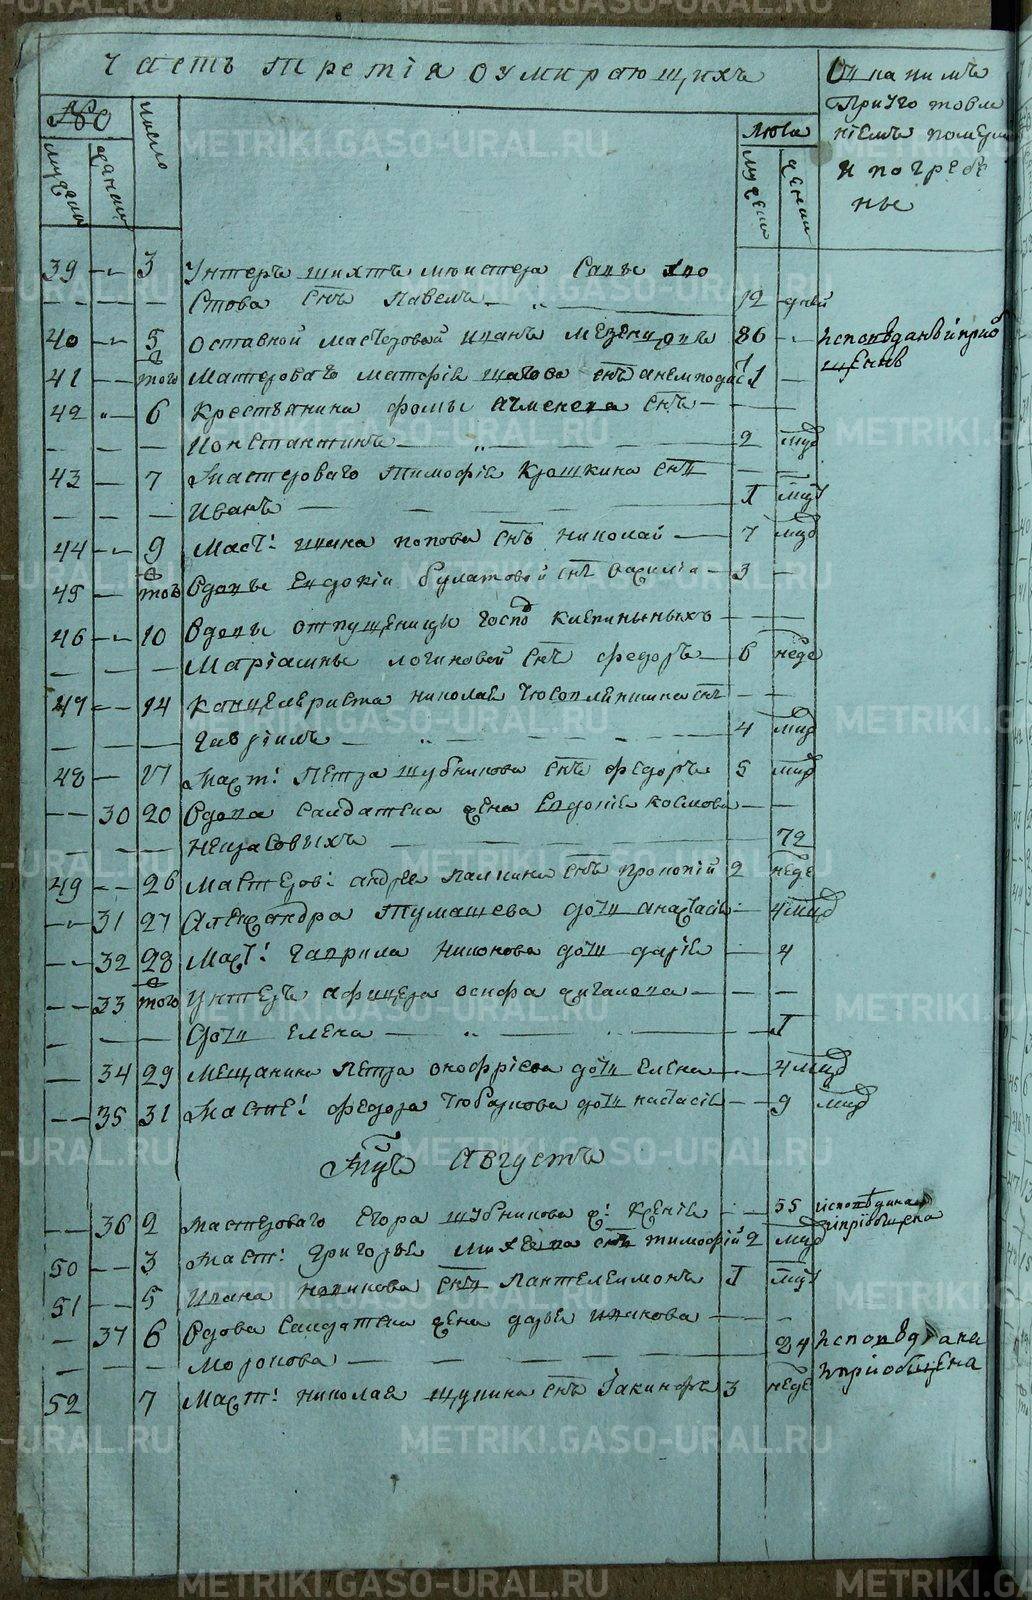 Часть третія оумирающихъ
Они какимъ
Приуготовле
ніемъ помер
и погребе
ны
№о
число
лета
мужеска
женска
мужеска
женска
39 3 Унтеръ шихтъ мейстера Савы Хво
стова снъ Павелъ 12 дней
40 5 Отставной мастеровой Иванъ Мезенцовъ 86 исповѣданъ и приоб
щенъ
41 того Мастероваго Матфѣя снъ 1
42 6 Крестьянина Фомы снъ
Константинъ 2 мцо
43 7 Мастероваго Тимофѣя Крошкина снъ
Иванъ 1 мцъ
44 9 Маст: Ивана Попова снъ Николай 7 мцо
45 того Вдовы Евдокіи Булатовой снъ Василій 3
46 10 Вдовы отпущеницы госпо
Маріамны Логиновой снъ Федоръ 6 неде
47 14 Канцеляриста Николая снъ
Гавріилъ 4 мцо
48 17 Маст: Петра Шубникова снъ Федоръ 5 мцо
30 20 Вдова салдатска жена Евдокіѣ Космова
72
49 26 Мастеров: Андрея Палкина снъ Прокопій 2 неде
31 27 Александра Тумашева дочь Анастасіѣ 4 мцо
32 28 Маст: Гаврила Никонова дочь Даріѣ 4
33 того Унтеръ афицера Осифа Жигалева
дочь Елена 1
34 29 Мещанина Петра Онофріева дочь Елена 4 мцо
35 31 Масте: Федора Чюбаркова дочь Настасіѣ 9 мцо
Мцъ Августъ
36 2 Мастероваго Егора Шубникова ж: Ксеніѣ 55 исповѣдана
и приобщена
50 3 Маст: Григорья Михѣева снъ Тимофѣй 2 мцо
51 5 Ивана Новикова снъ Пантелеимонъ 1 мцъ
37 6 Вдова салдатска жена Дарья Иванова
Моронова 24 исповѣдана
и приобщена
52 7 Маст: Николая Щукина снъ Іакинфъ 3 неде
METRIKI.GASO-URAL.RU